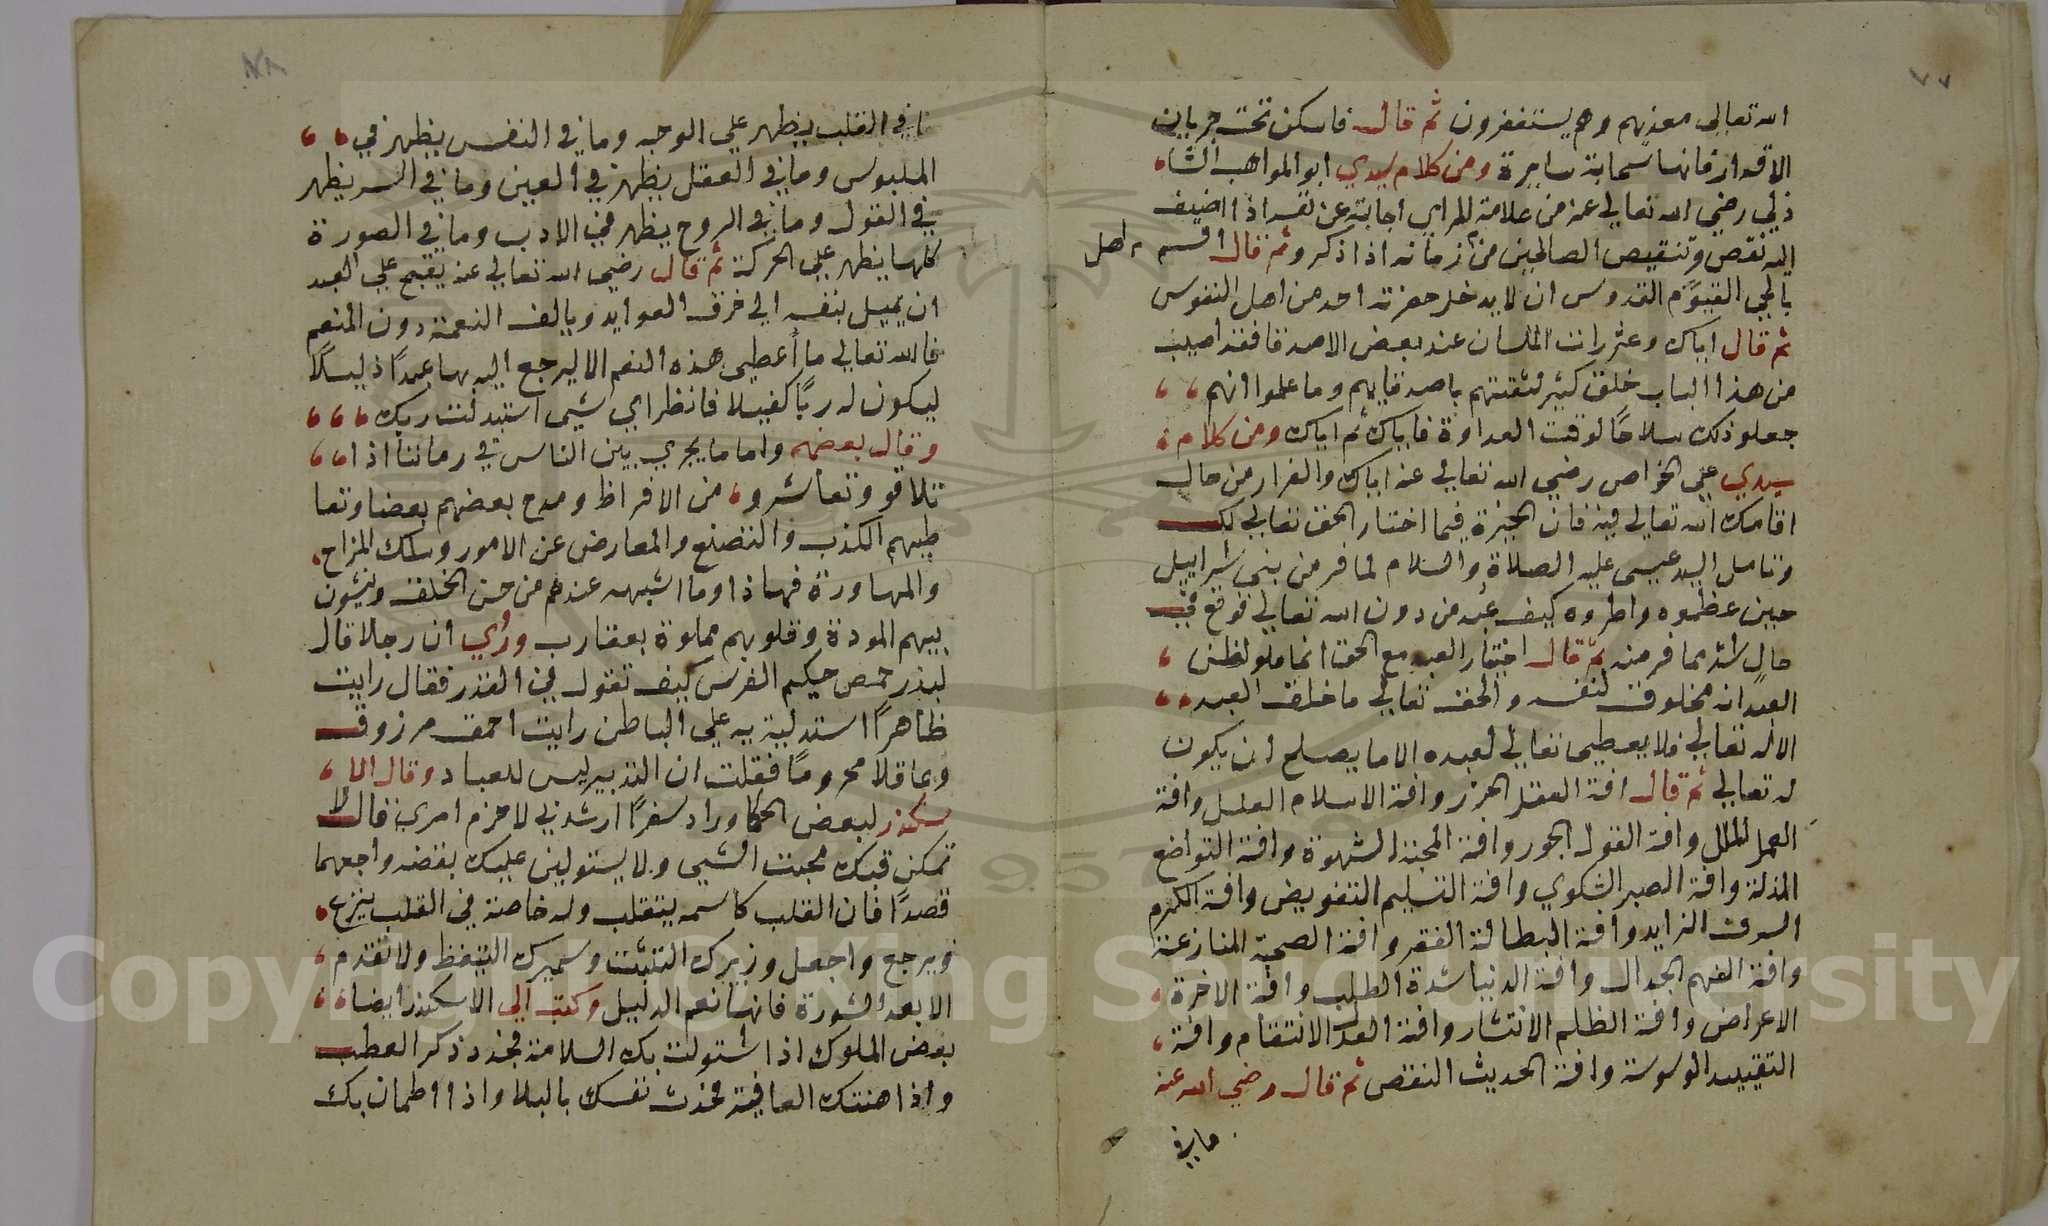 ٧٧
الله تعالى معذبهم وهم يستغفرون ثم قال فاسكن تحت جريان
الاقدار فانها سحابة سايرة ومن كلام سيدي ابو المواهب الشا
ذلي رضي الله تعالى عنه من علامة المراي اجابته عن نفسه اذا اضيف
اليه نقص وتنقيص الصالحين من زمانه اذا ذكر وثم قال اقسم
بالحي القيوم القدوس ان لا يدخل حضرته احد من اهل النفوس
ثم قال اياك وعثرات اللسان عند بعض الاصدقا فقد اصيب
من هذا الباب خلق كثير لثقتهم باصدقايهم وما علموا انهم
جعلو ذلك سلاحًا لوقت العداوة فاياك ثم اياك ومن كلام
سيدي علي الخواص رضي الله تعالى عنه اياك والفرار من حال
اقامك الله تعالى فيه فان الخيرة فيما اختار الحق تعالى لك
وتامل السيد عيسى عليه الصلاة والسلام لما فر من بني اسراييل
حين عظموه واطروه كيف عبد من دون الله تعالى فوقع في
حال اشد مما فر منه ثم قال اختيار العبد مع الحق انما هو لظن
العبد انه مخلوق لنفسه والحق تعالى ما خلق العبد
الا له تعالى فلا يعطى تعالى لعبده الا ما يصلح ان يكون
له تعالى ثم قال افة العقل الحذر وافة الاسلام العلل وافة
العمل الملل وافة القول الجور وافة المحبة الشهوة وافة التواضع
المذلة وافة الصبر الشكوي وافة التسليم التفويض وافة الكرم
السرف الزايد وافة البطالة الفقر وافة الصحبة المنازعة
وافة الفهم الجدال وافة الدنيا شدة الطلب وافة الاخرة
الاعراض وافة الظلم الانتشار وافة العدل الانتقام وافة
التقييد الوسوسة وافة الحديث النقص ثم قال رضي الله عنه
ما في
٧٨
ما في القلب يظهر على الوجه وما في النفس يظهر في
الملبوس وما في العقل يظهر في العين وما في السر يظهر
في القول وما في الروح يظهر في الادب وما في الصورة
كلها يظهر على الحركة ثم قال رضي الله تعالى عنه يقبح على العبد
ان يميل بنفسه الى خرق العوايد ويالف النعمة دون المنعم
فالله تعالى ما أعطى هذه النعم الا ليرجع اليه بها عبدًا ذليلًا
ليكون له ربًا كفيلا فانظر اي شيى استبدلت ربك
وقال بعضهم واما ما يجري بين الناس في زماننا اذا
تلاقو وتعاشرو من الافراط ومدح بعضهم بعضا وتعا
طيهم الكذب والتصنع والمعارض عن الامور وسلك المزاح
والمهاورة فهاذا وما اشبهه عندهم من حسن الخلق وينشون
بيهم المودة وقلوبهم مملوة بعقارب وروي ان رجلا قال
لبذرجمص حكيم الفرس كيف تقول في القدر فقال رايت
ظاهرًا استدليت به على الباطن رايت احمق مرزوق
وعاقلا محرومًا فقلت ان التدبير ليس للعباد وقال الا
سكندر لبعض الحكما وراد سفرًا ارشدني لاحزم امري قال لا
تمكن قبك محبت الشيى ولا يستولين عليك بغضه واجعهما
قصدًا فان القلب كاسمه يتقلب وله خاصة في القلب ينزع
ويرجع واجعل وزيرك التثبت وسميرك التيفظ ولا تقدم
الا بعد الشورة فانها نعم الدليل وكتب الي الاسكندر ايضا
بعض الملوك اذا اشتولت بك السلامة فجدد ذكر العطب
واذا هنتك العافية فحذث نفسك بالبلا واذا اطمان بك
Copyright © King Saud University
1957